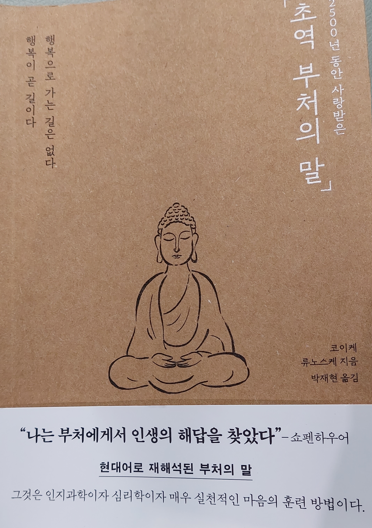 2500년 동안 사랑받은
「초역 부처의 말」
행복으로 가는 길은 없다
행복이 곧 길이다
코이케
류노스케 지음
박재현 옮김
“나는 부처에게서 인생의 해답을 찾았다”-쇼펜하우어
현대어로 재해석된 부처의 말
그것은 인지과학이자 심리학이자 매우 실천적인 마음의 훈련 방법이다.